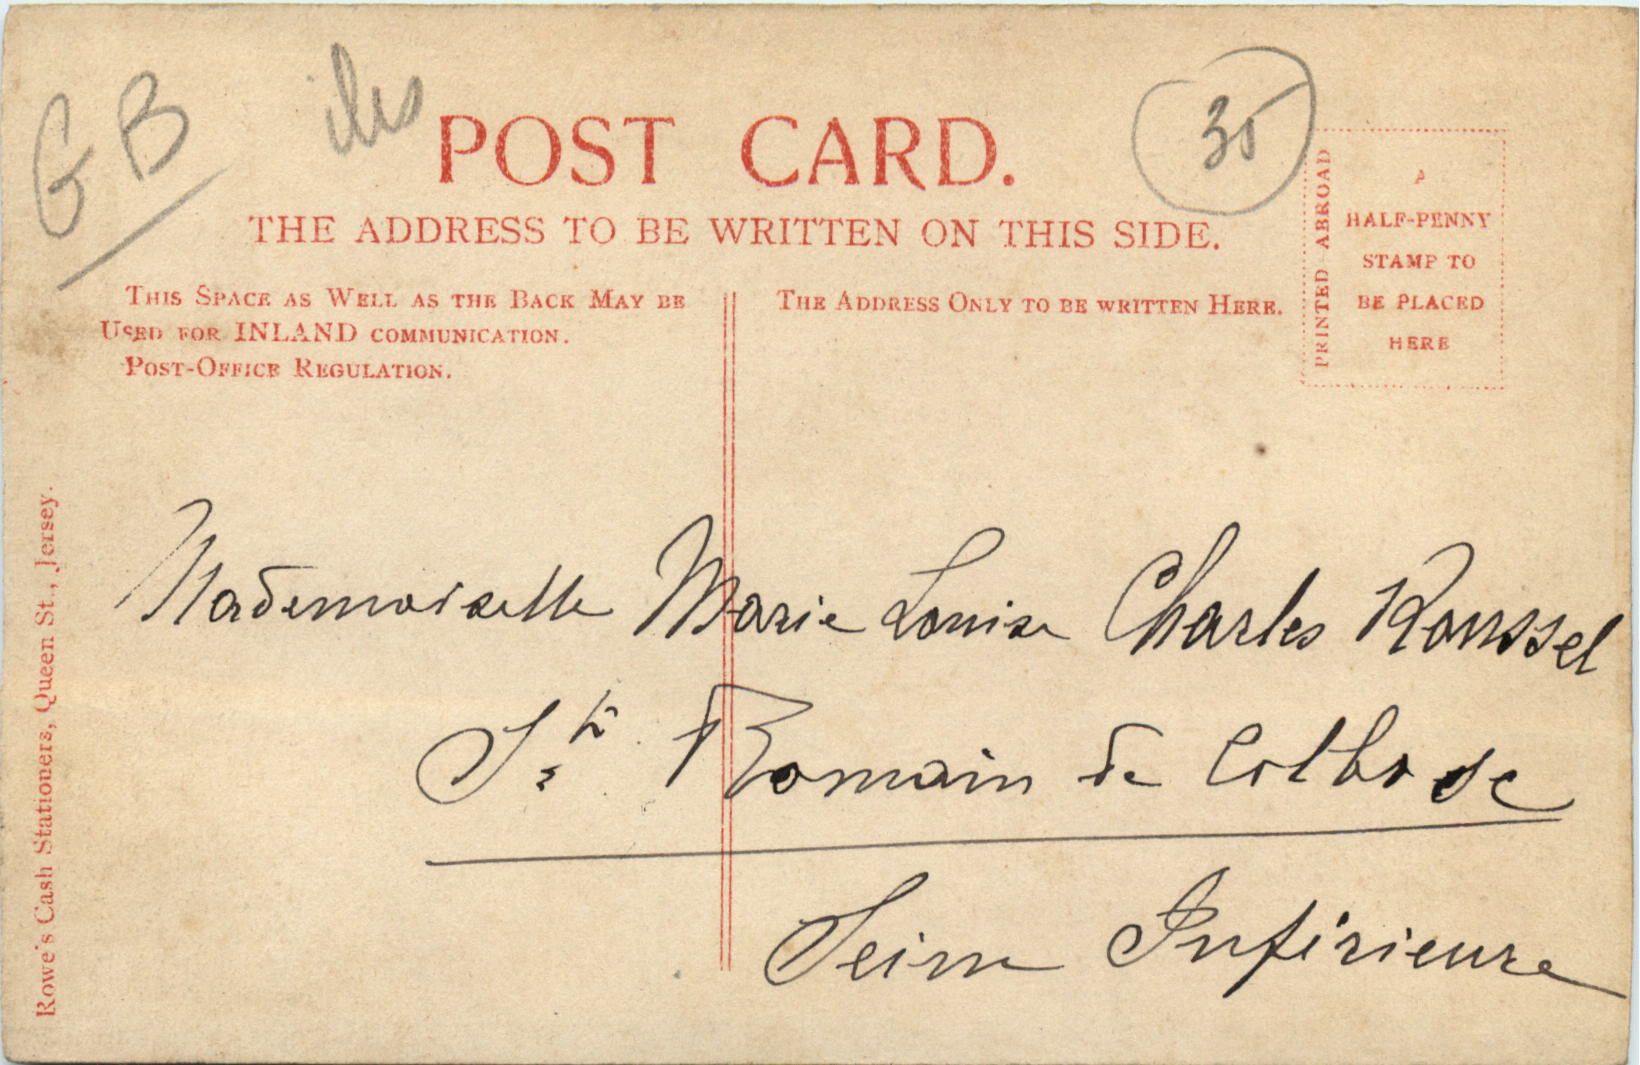 GB
iles
35
POST CARD.
THE ADDRESS TO BE WRITTEN ON THIS SIDE.
THIS SPACE AS WELL AS THE BACK MAY BE
USED FOR INLAND COMMUNICATION.
POST-OFFICE REGULATION.
THE ADDRESS ONLY TO BE WRITTEN HERE.
PRINTED ABROAD
A
HALF-PENNY
STAMP TO
BE PLACED
HERE
Mademoiselle Marie Louise Charles Roussel
St Romain de Colbosc
Seine Inférieure
Rowe's Cash Stationers, Queen St., Jersey.